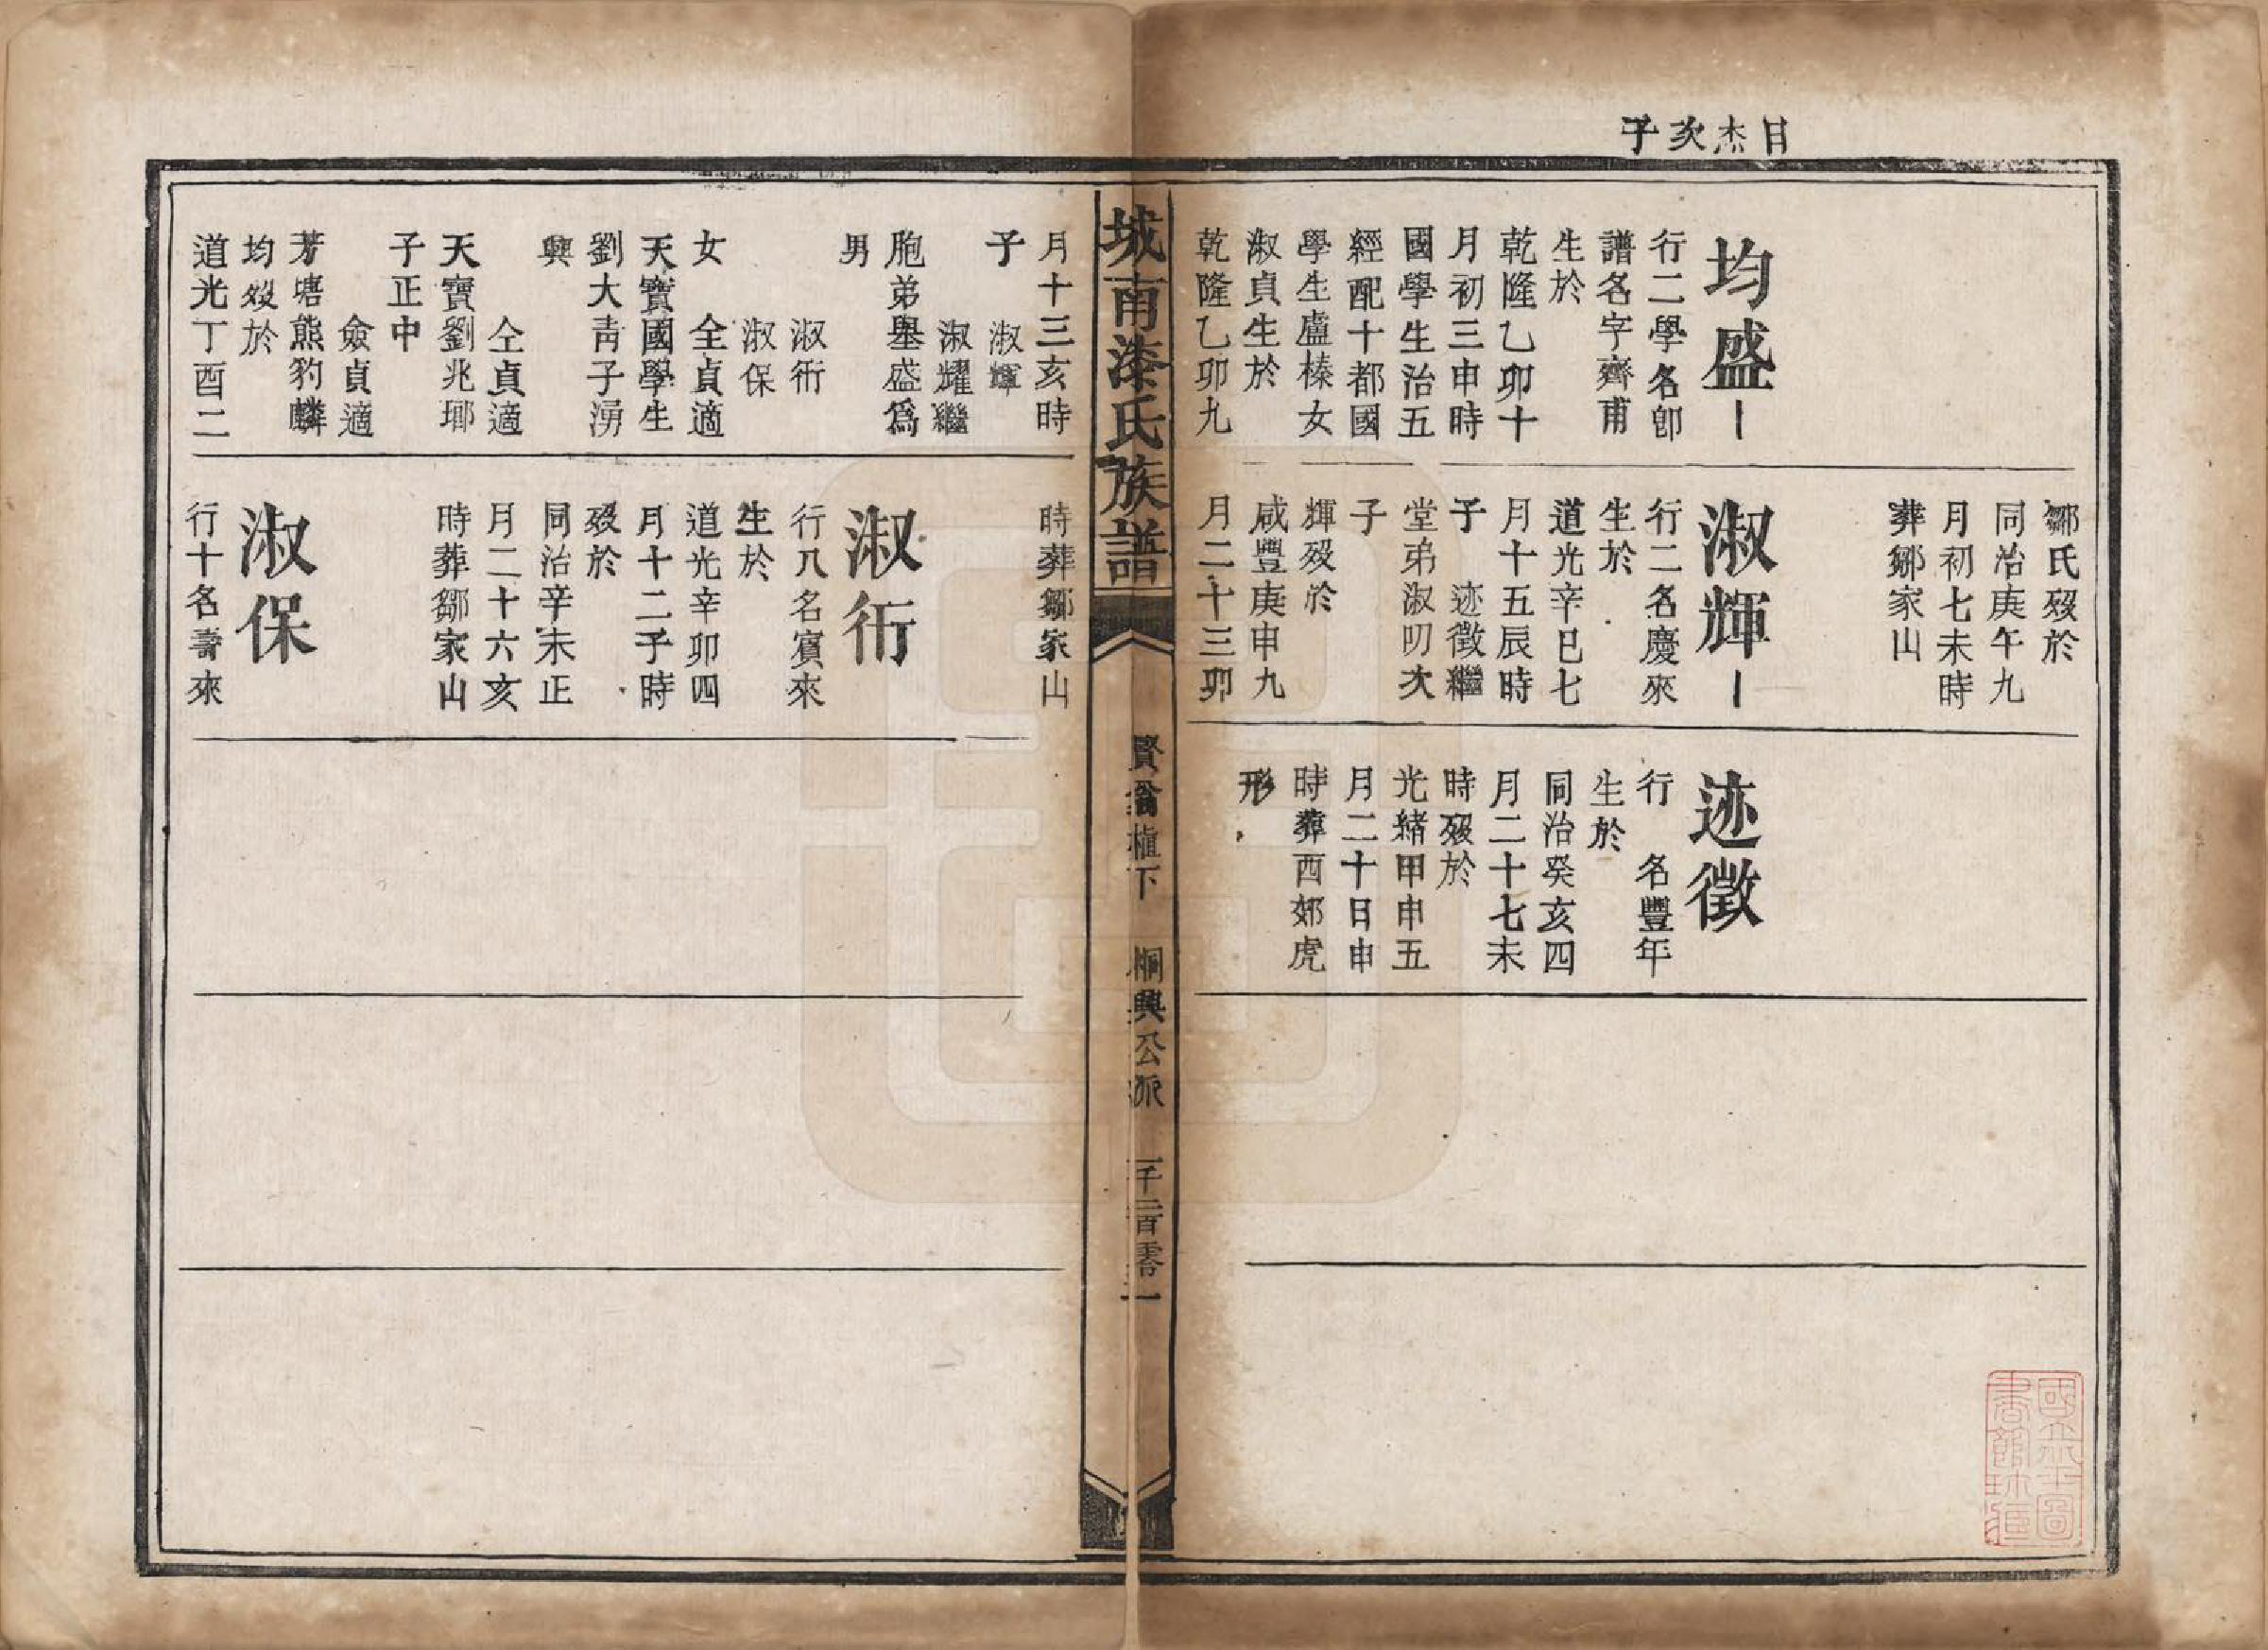 日杰次子
均盛
行二學名卽
譜名字齊甫
生於
乾隆乙卯十
月初三申時
國學生治五
經配十都國
學生盧榛女
淑貞生於
乾隆乙卯九
鄒氏歿於
同治庚午九
月初七未時
葬鄒家山
淑輝
行二名慶來
生於
道光辛巳七
月十五辰時
子 迹徵繼
堂弟淑叨次
子
輝歿於
咸豐庚申九
月二十三卯
迹徵
行 名豐年
生於
同治癸亥四
月二十七未
時歿於
光緒甲申五
月二十日申
時葬西郊虎
形
城南漆氏族譜
賢翁植下 桐興公派 一千三百零二
月十三亥時
子 淑輝
淑耀繼
胞弟舉盛爲
男
淑衎
淑保
女 仝貞適
天寶國學生
劉大靑子湧
興
仝貞適
天寶劉兆瑯
子正中
僉貞適
芳塘熊豹麟
均歿於
道光丁酉二
時葬鄒家山
淑衎
行八名賓來
生於
道光辛卯四
月十二子時
歿於
同治辛未正
月二十六亥
時葬鄒家山
淑保
行十名壽來